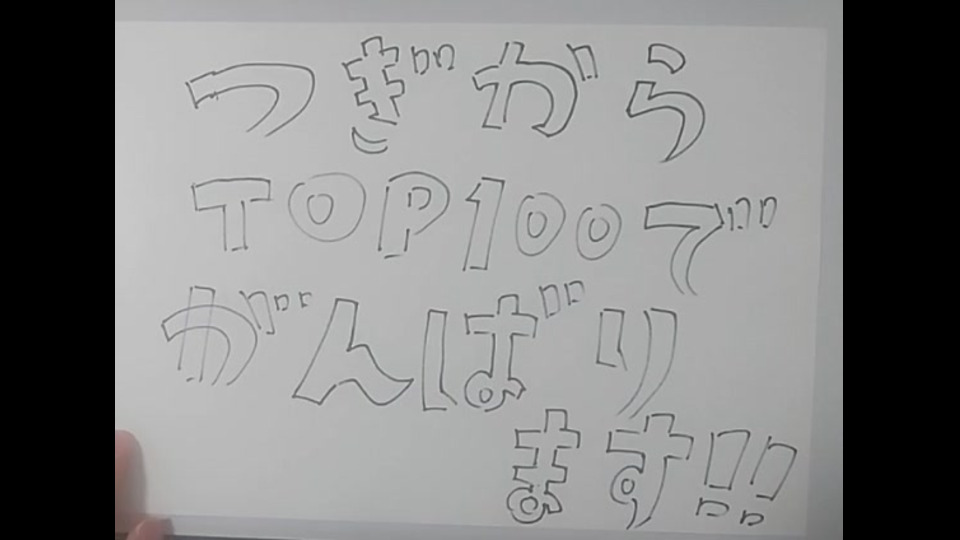 つぎから
TOP100で
がんばり
ます!!